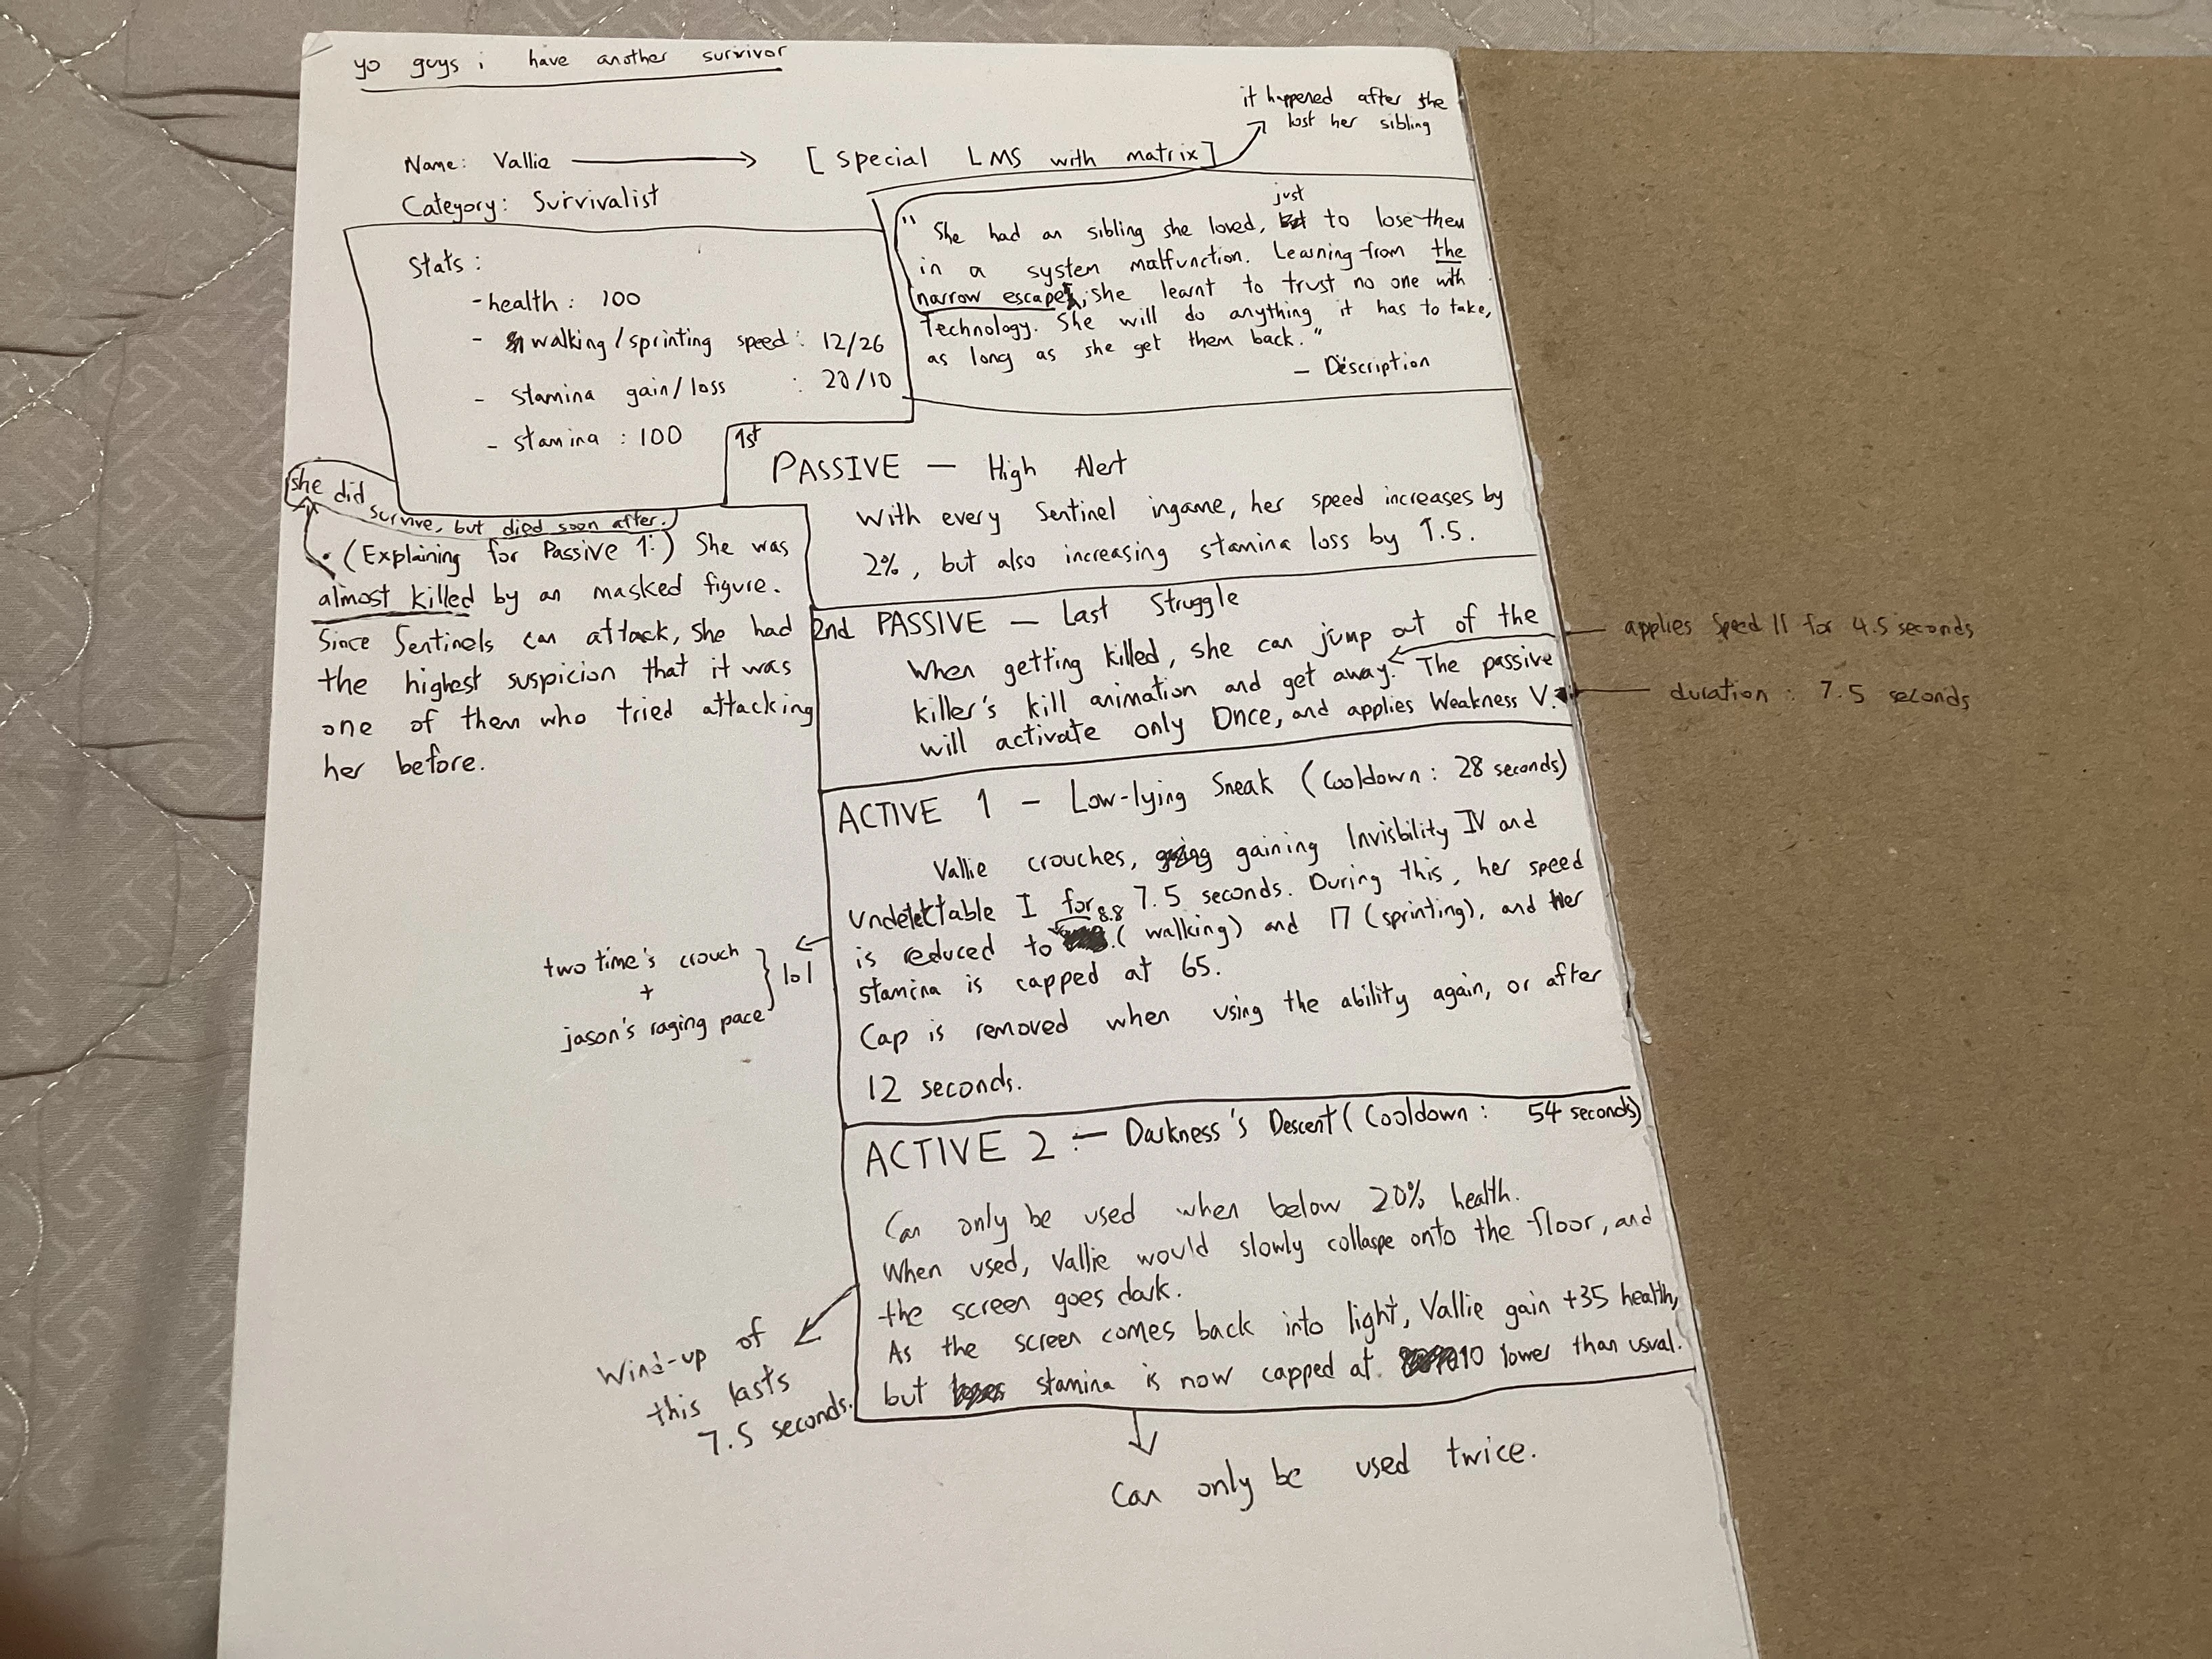 yo guys i have another survivor
it happened after she
lost her sibling
Name: Vallie → [special LMS with matrix]
Category: Survivalist
Stats:
- health: 100
- walking/sprinting speed: 12/26
- stamina gain/loss : 20/10
- stamina : 100
just
"She had an sibling she loved, to lose them
in a system malfunction. Learning from the
narrow escape, she learnt to trust no one with
Technology. She will do anything it has to take,
as long as she get them back."
— Description
1st
PASSIVE — High Alert
With every Sentinel ingame, her speed increases by
2%, but also increasing stamina loss by 1.5.
she did
survive, but died soon after.
• (Explaining for Passive 1:) She was
almost killed by an masked figure.
Since Sentinels can attack, she had
the highest suspicion that it was
one of them who tried attacking
her before.
2nd PASSIVE — Last Struggle
When getting killed, she can jump out of the
killer's kill animation and get away. The passive
will activate only Once, and applies Weakness V.
applies Speed II for 4.5 seconds
duration : 7.5 seconds
ACTIVE 1 - Low-lying Sneak (Cooldown: 28 seconds)
Vallie crouches, gaining Invisbility IV and
Undetectable I for 7.5 seconds. During this, her speed
is reduced to 8.8 (walking) and 17 (sprinting), and Her
stamina is capped at 65.
Cap is removed when using the ability again, or after
12 seconds.
two time's crouch
+
jason's raging pace
lol
ACTIVE 2 — Darkness's Descent (Cooldown: 54 seconds)
Can only be used when below 20% health.
When used, Vallie would slowly collaspe onto the floor, and
the screen goes dark.
As the screen comes back into light, Vallie gain +35 health,
but stamina is now capped at 10 lower than usual.
Wind-up of
this lasts
7.5 seconds.
Can only be used twice.